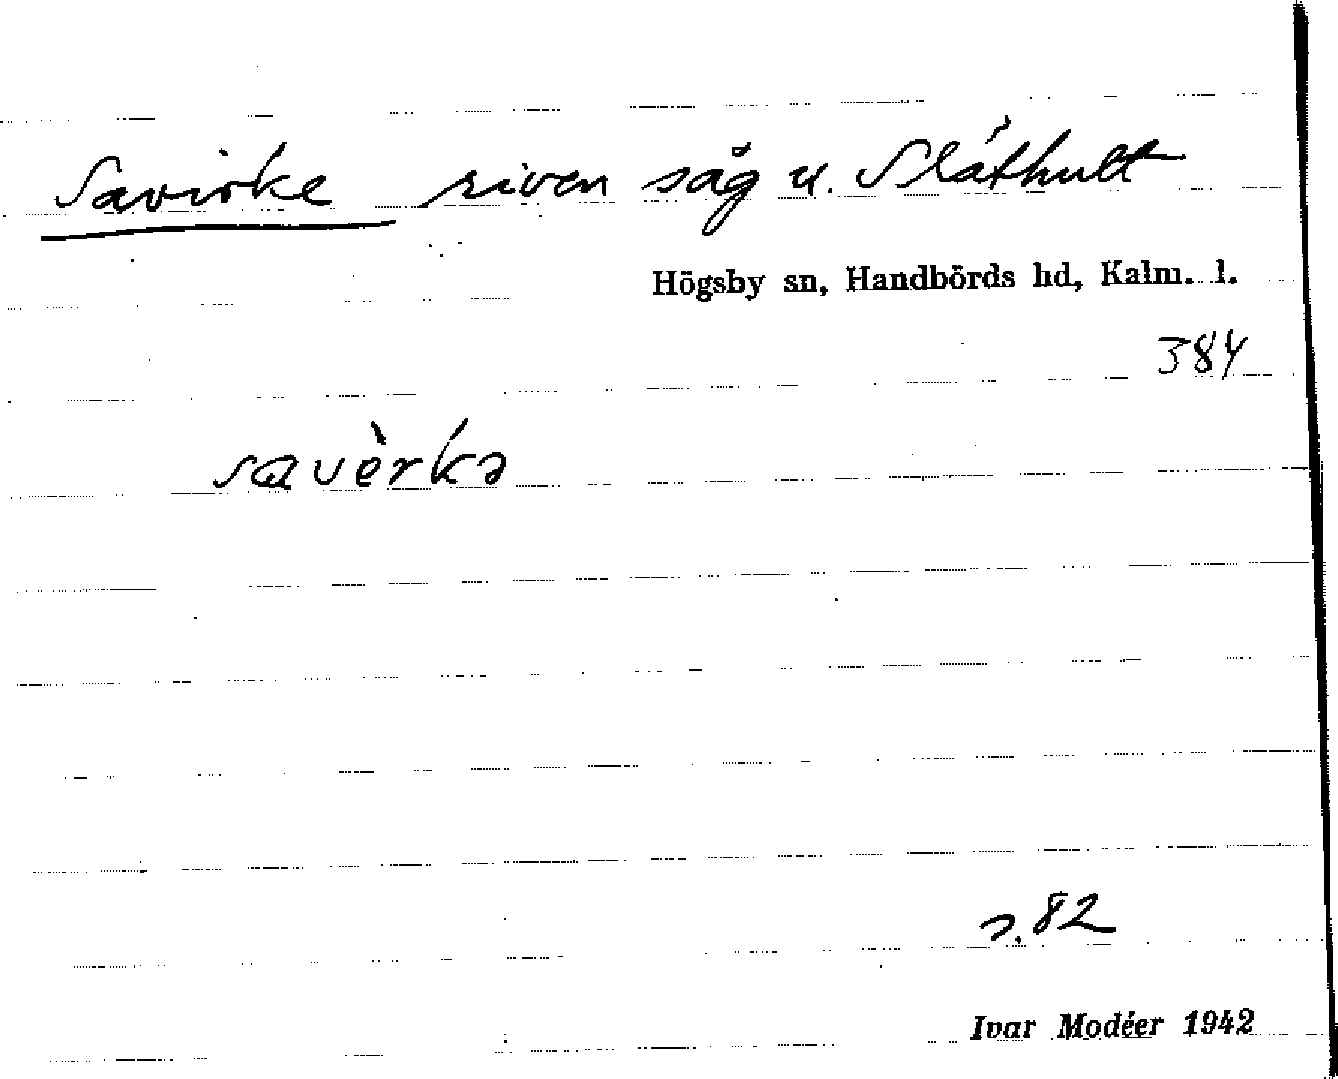 Savirke riven såg u. Slåthult
Högsby sn, Handbörds hd, Kalm. l.
384
savèrkə
s. 82
Ivar Modéer 1942